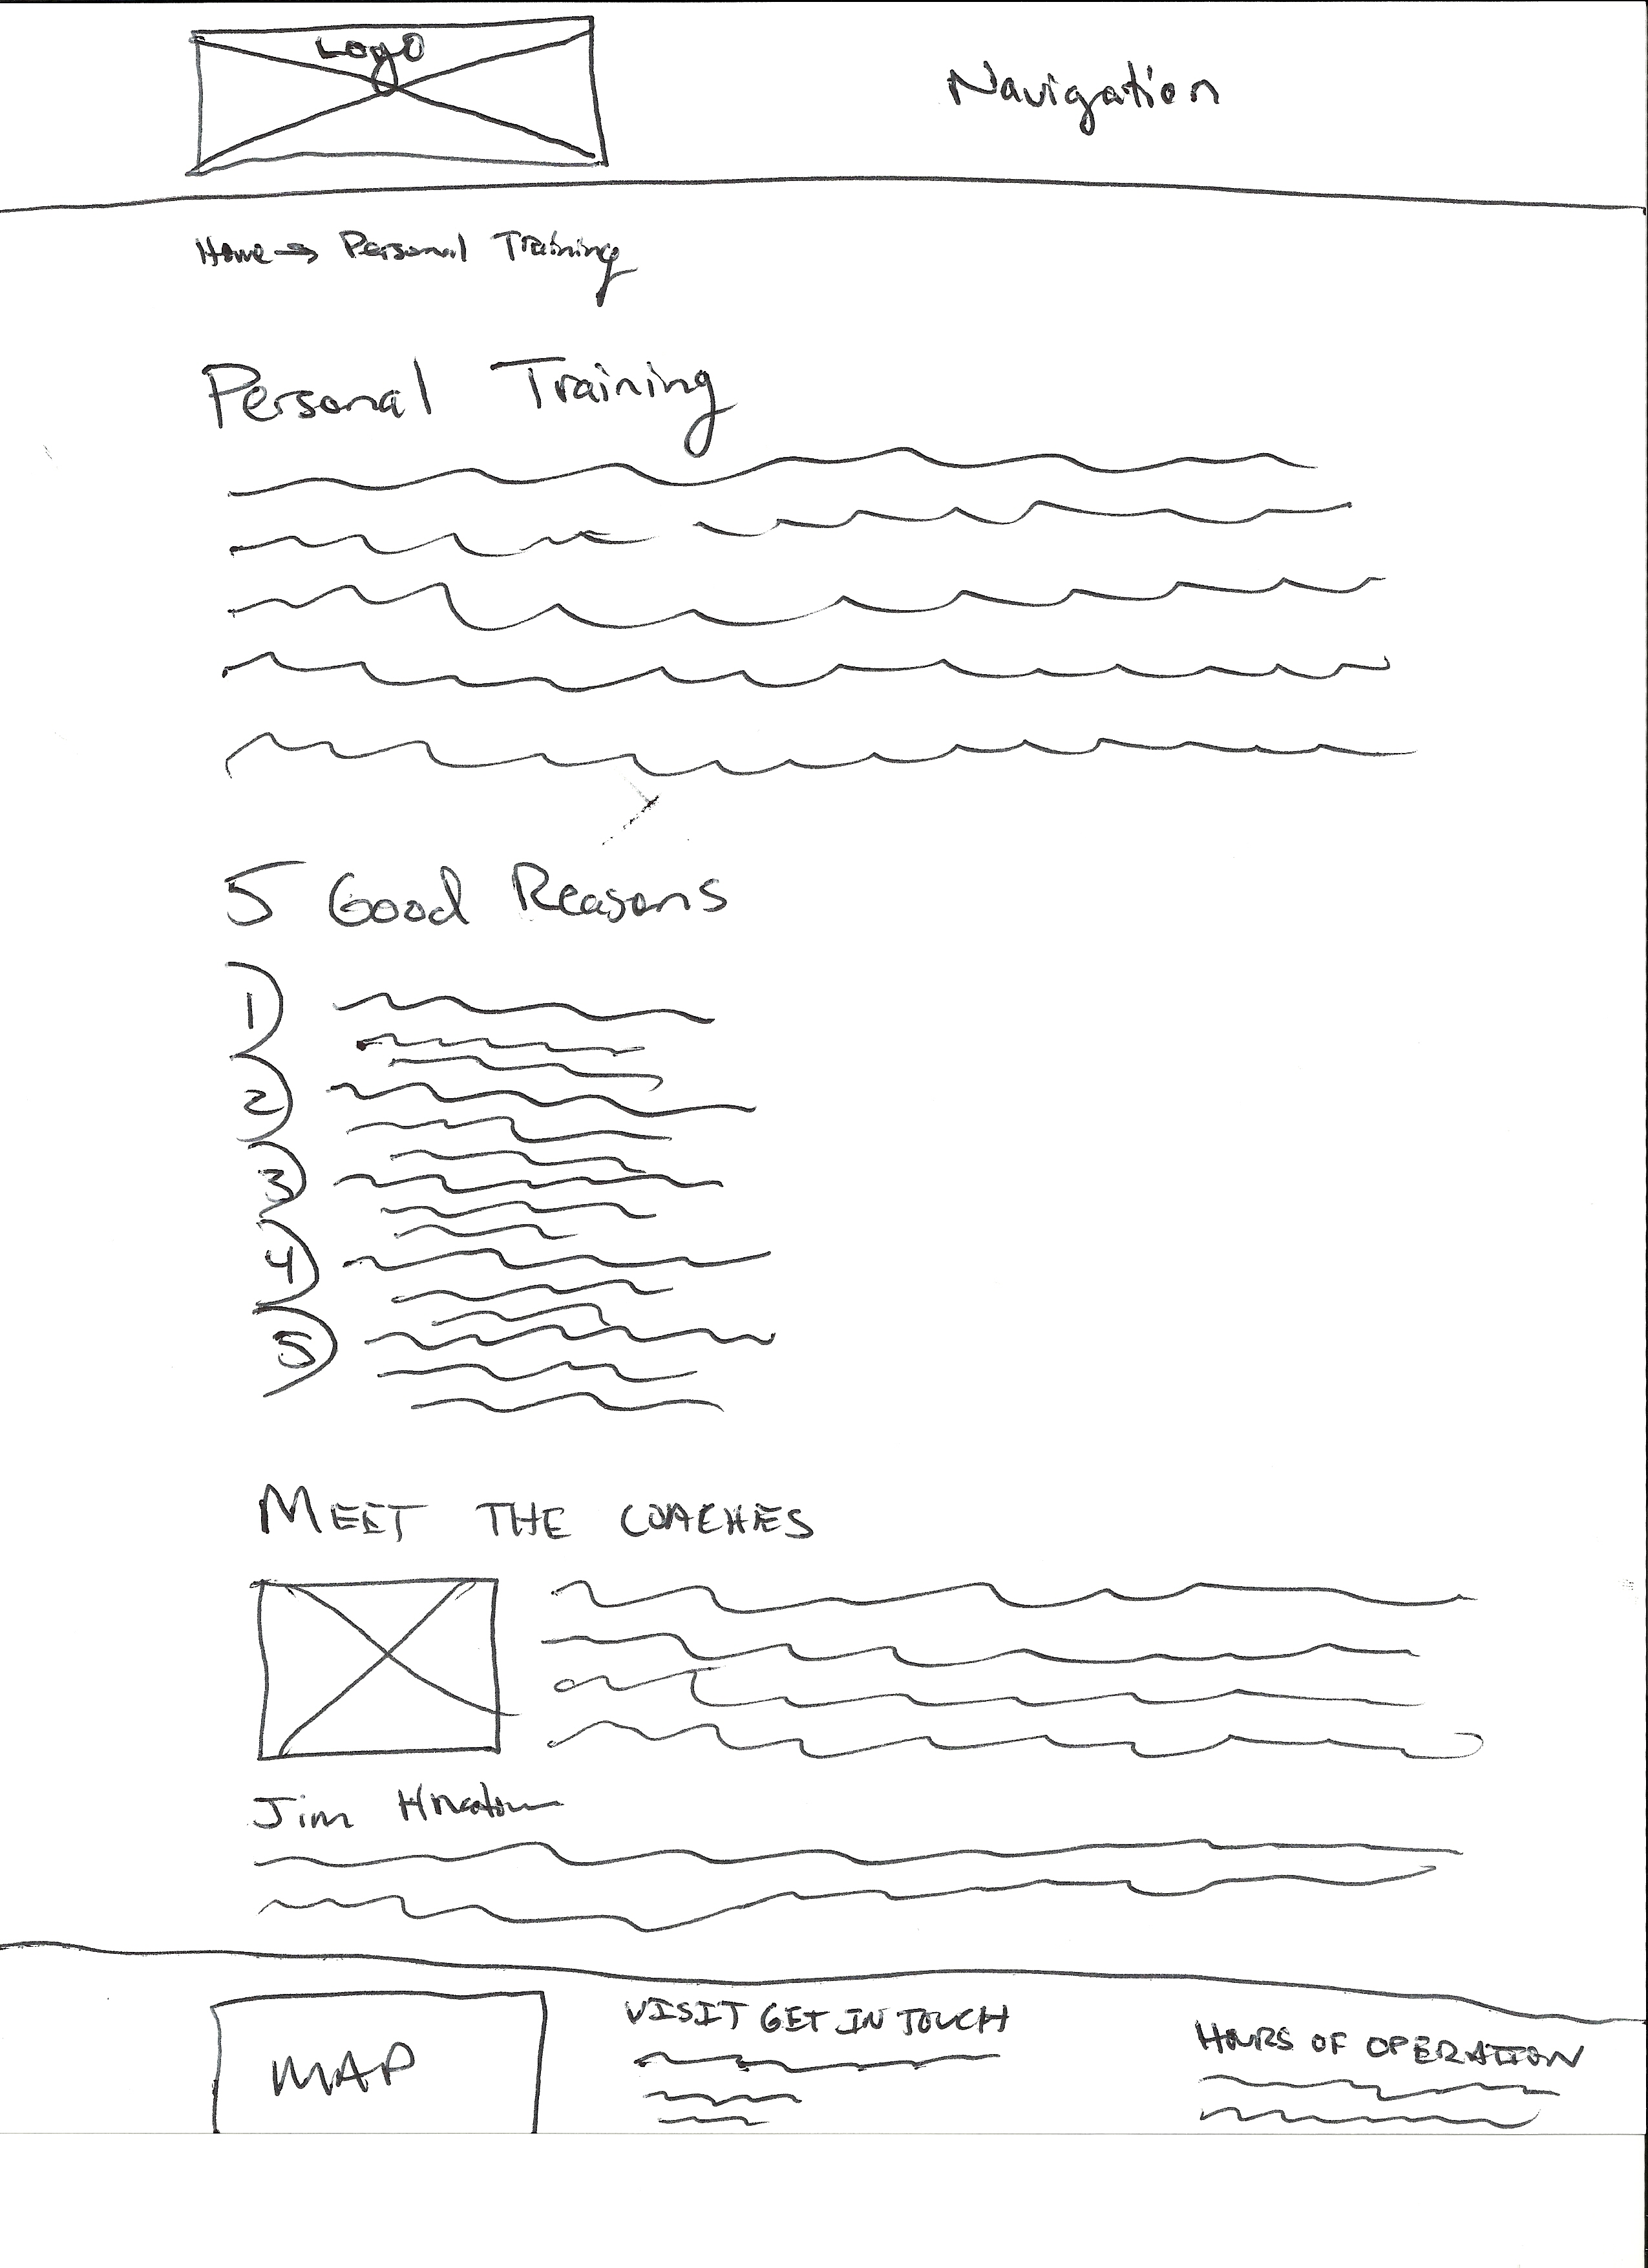 Logo
Navigation
Home → Personal Training
Personal Training
5 Good Reasons
1
2
3
4
5
MEET THE COACHES
Jim
MAP
VISIT GET IN TOUCH
HOURS OF OPERATION